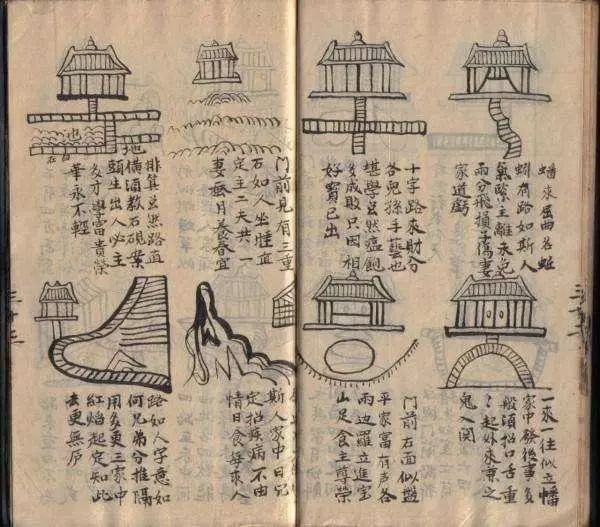 蟠來屈曲名蚯
蚓有路如斯人
氣主離未必
兩分飛損子妻
家道虧
十字路來財分
各兒孫手藝也
堪學豈然瘟飽
多成敗只因相
好寶已出
一來一往似立幡
家中發後事多
般須招口舌重
起外來兼之
鬼入関
門前右面似盤
平家富有声各
兩边羅立進宝
山足食主尊榮
門前見有三重
石如人坐睡宜
定主二夫共一
妻無月養春宜
池
排算豈然路直
備酒教石硯案
頭生出人必主
多才學富貴榮
華永不輕
斯人家中日記
定招疾病不由
情日食每求人
路如人字意如
何兄弟分推隔
用多更三家中
紅焰起定知此
去更無戶
三十三